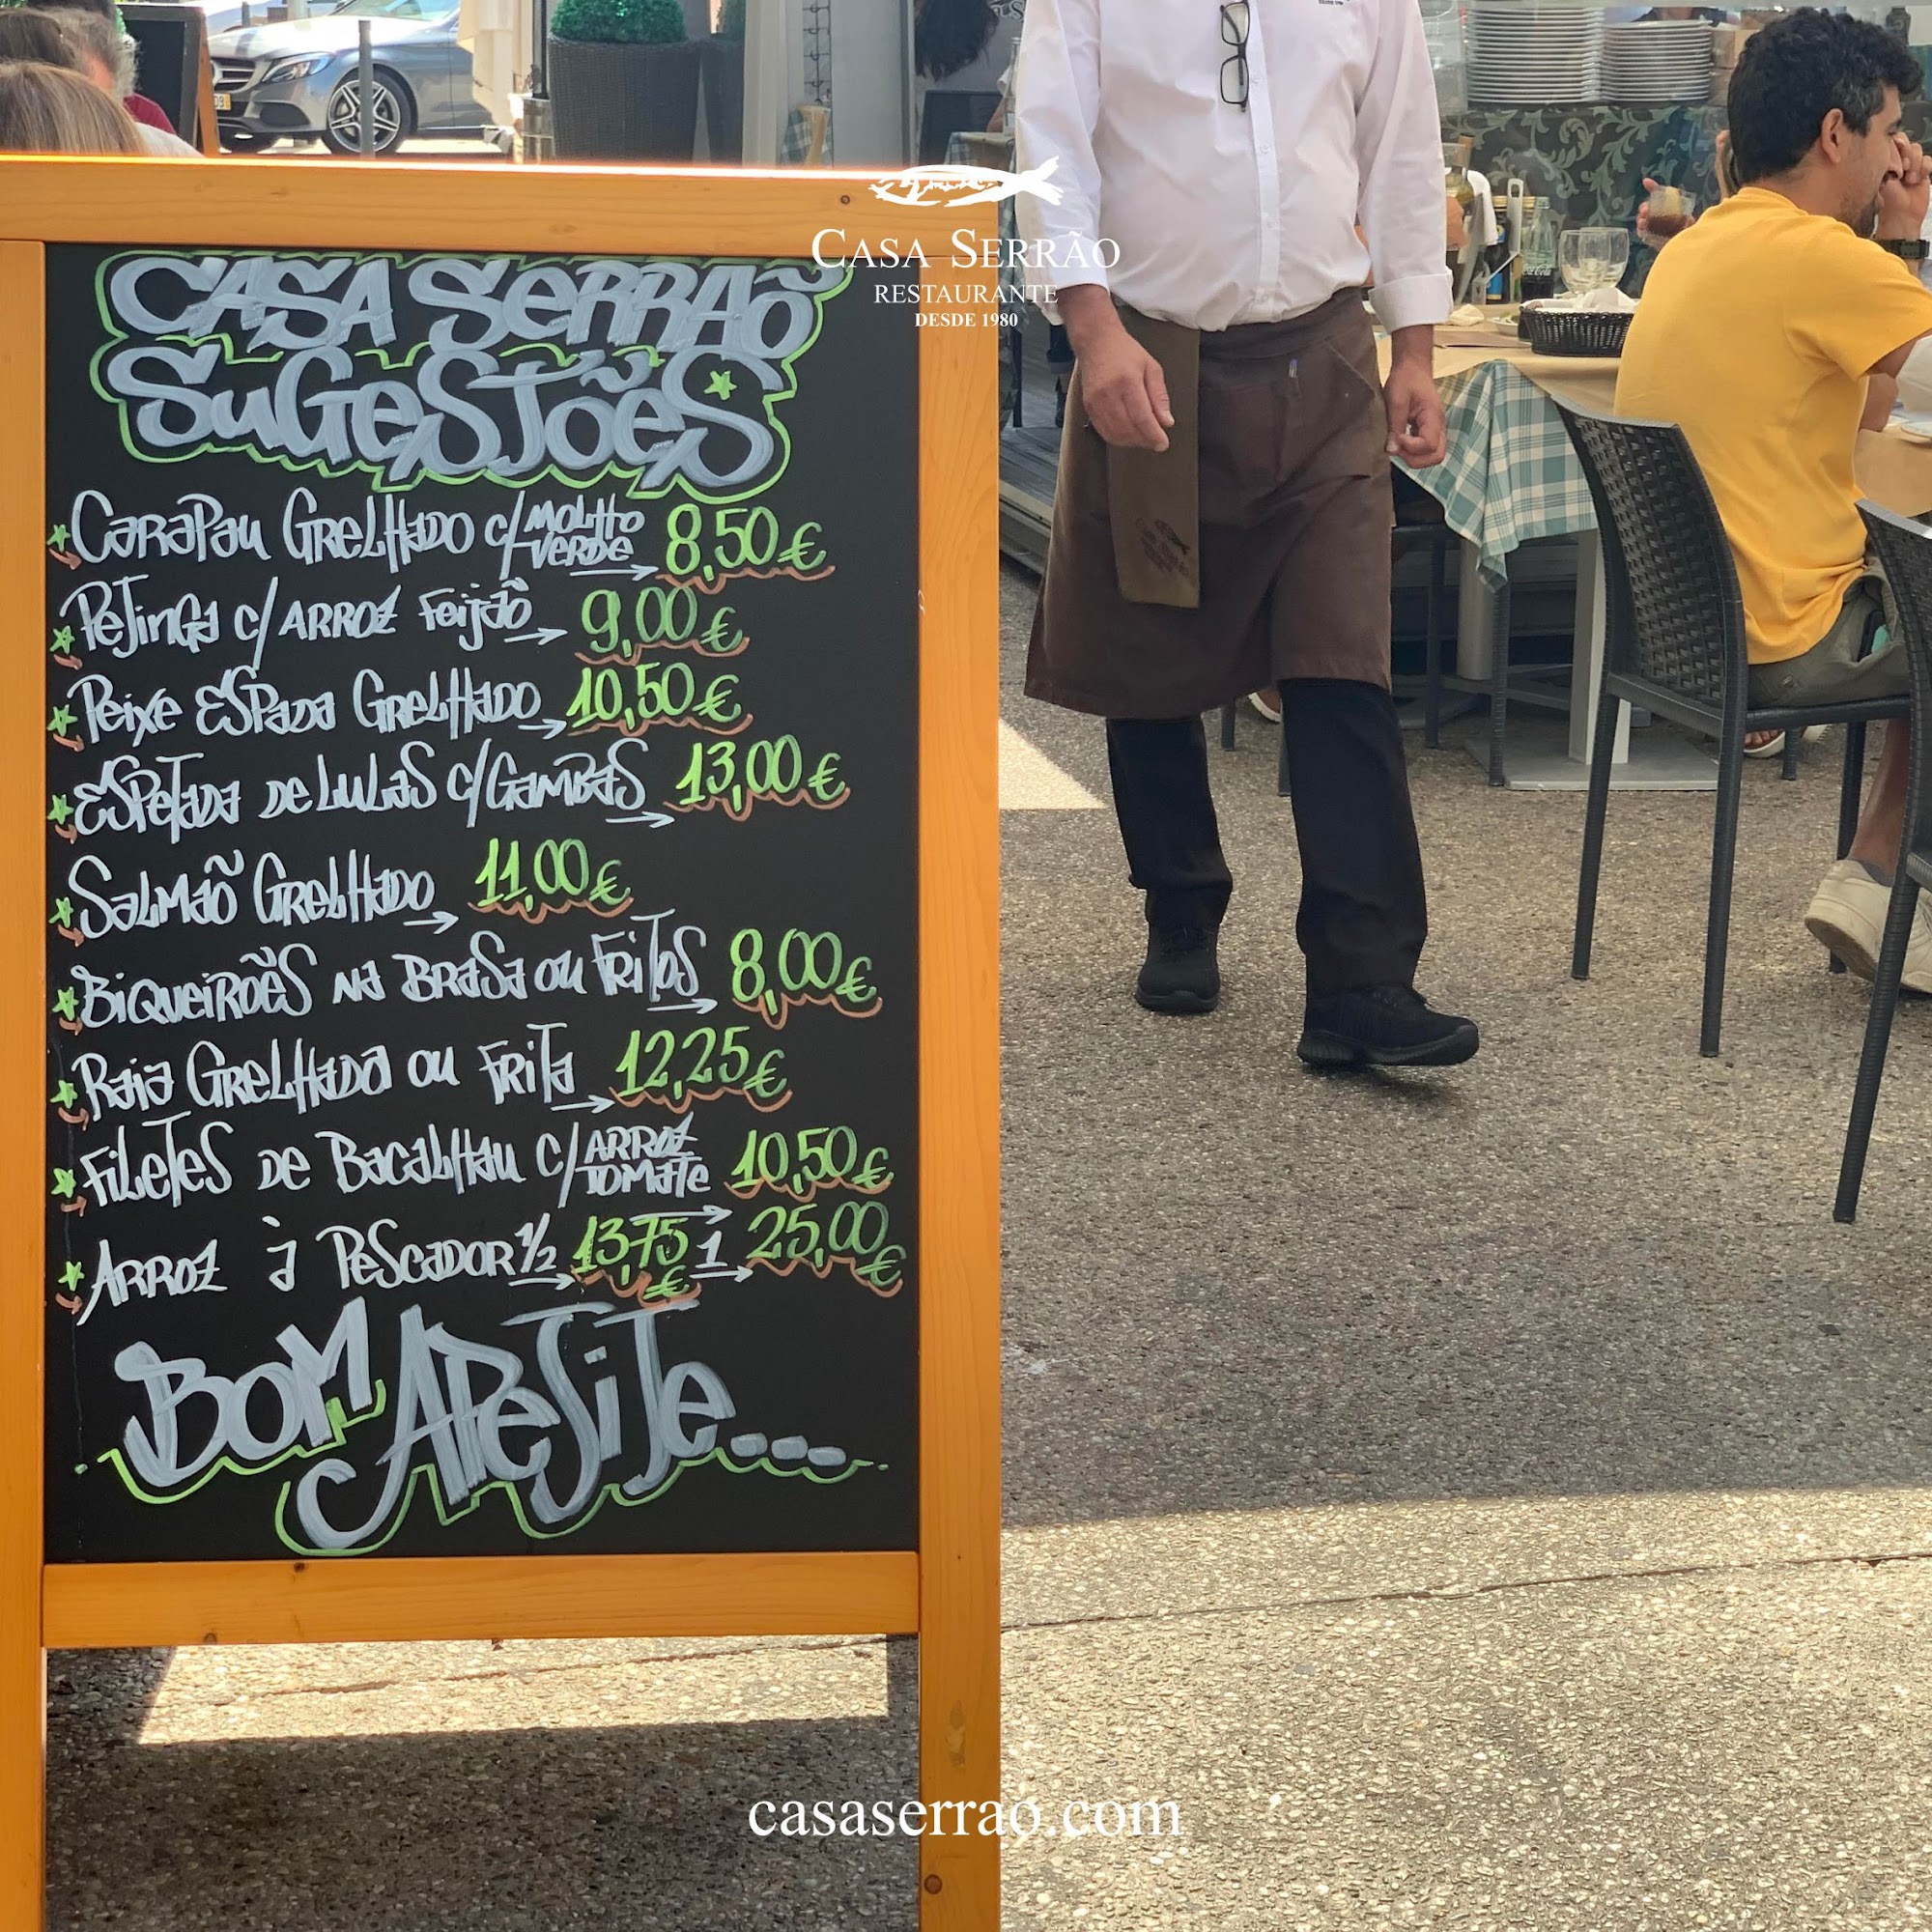 CASA SERRÃO
RESTAURANTE
DESDE 1980
CASA SERRAÕ
SUGESTÕES
CARAPAU GRELHADO C/ MOLHO VERDE 8,50€
PETINGA C/ ARROZ FEIJÃO 9,00€
PEIXE ESPADA GRELHADO 10,50€
ESPETADA DE LULAS C/ GAMBAS 13,00€
SALMAÕ GRELHADO 11,00€
BIQUEIRÕES NA BRASA OU FRITOS 8,00€
RAIA GRELHADA OU FRITA 12,25€
FILETES DE BACALHAU C/ ARROZ TOMATE 10,50€
ARROZ À PESCADOR 1/2 13,75€ 1 25,00€
BOM APETITE...
casaserrao.com